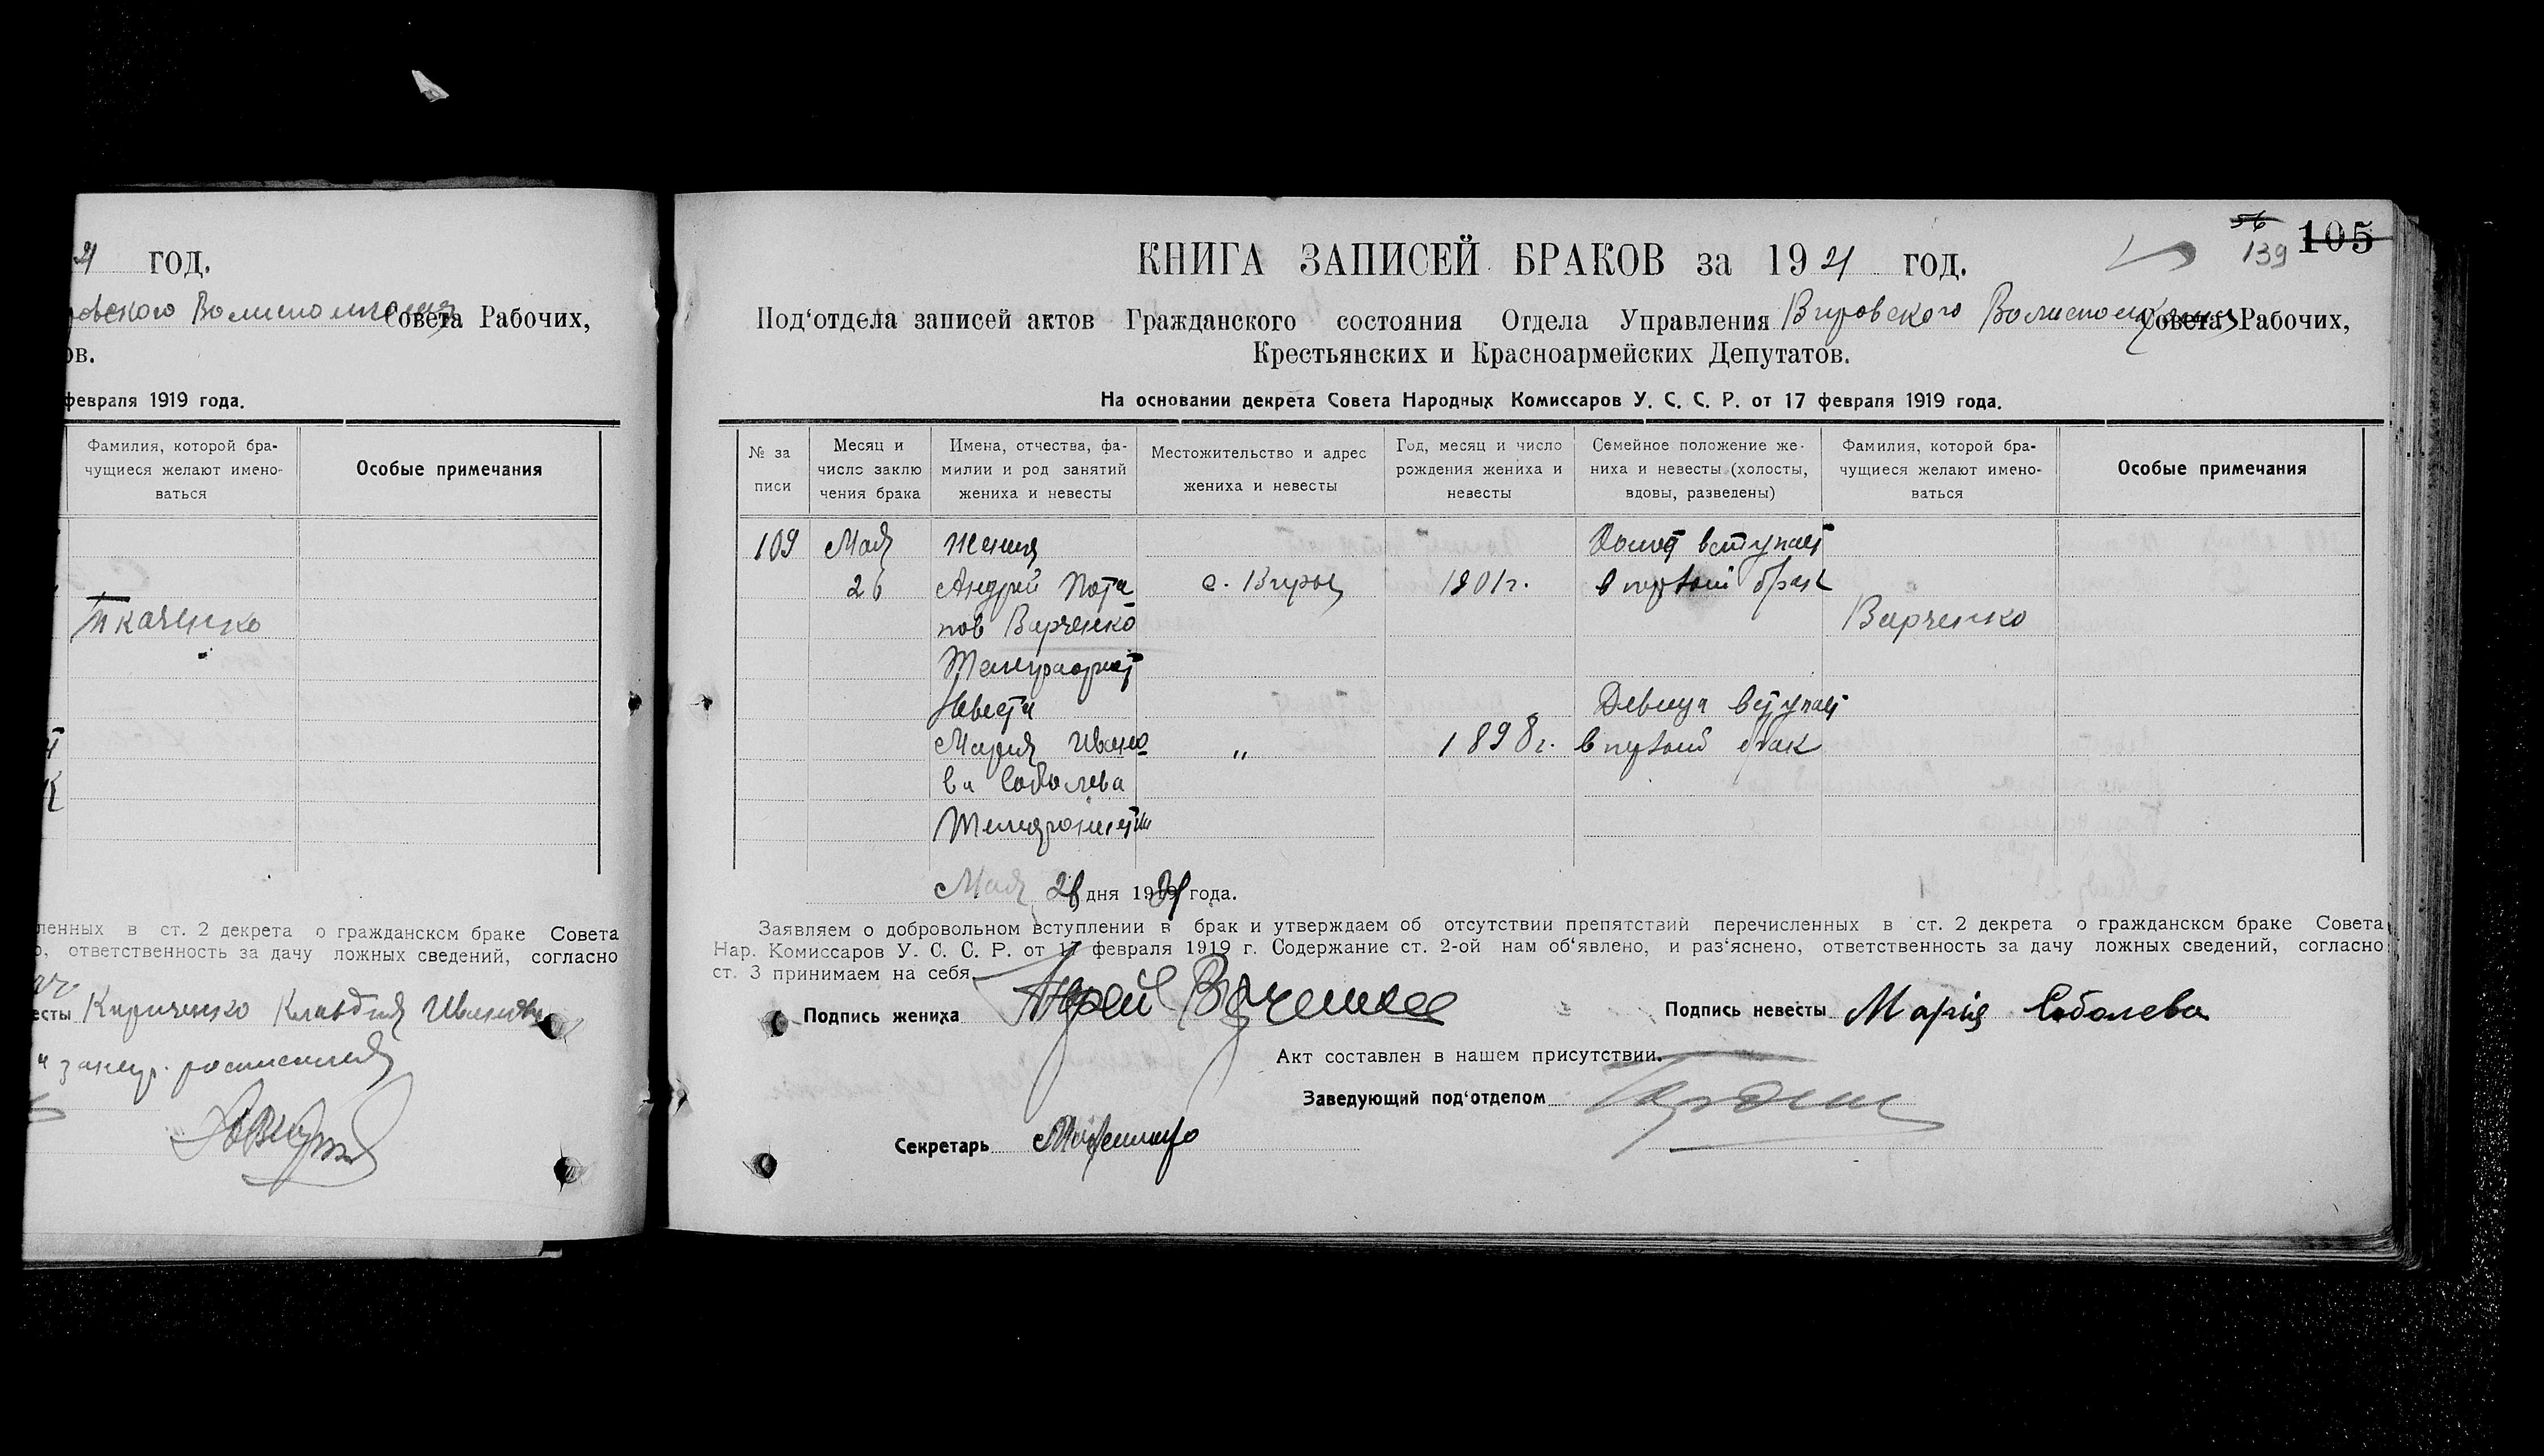 21 ГОД.
Совета Рабочих,
ов.
февраля 1919 года.
Фамилия, которой бра-
чущиеся желают имено-
ваться
Особые примечания
Ткаченко
ленных в ст. 2 декрета о гражданском браке Совета
о, ответственность за дачу ложных сведений, согласно
есты Кириченко Клавдия Ивановна
56
139 105
КНИГА ЗАПИСЕЙ БРАКОВ за 1921 год.
Под‘отдела записей актов Гражданского состояния Отдела Управления Вировского Волисполкома Совета Рабочих,
Крестьянских и Красноармейских Депутатов.
На основании декрета Совета Народных Комиссаров У. С. С. Р. от 17 февраля 1919 года.
№ за
писи
Месяц и
число заклю
чения брака
Имена, отчества, фа-
милии и род занятий
жениха и невесты
Местожительство и адрес
жениха и невесты
Год, месяц и число
рождения жениха и
невесты
Семейное положение же-
ниха и невесты (холосты,
вдовы, разведены)
Фамилия, которой бра-
чущиеся желают имено-
ваться
Особые примечания
109 Мая Жених Холост вступает
26 Андрей Пота с. Виры 1901г. в первый брак
пов Варченко Варченко
Телеграфист
Невеста Девица вступает
Мария Ивано „ 1898г. в первый брак
ва Соболева
Мая 26 дня 1921 года.
Заявляем о добровольном вступлении в брак и утверждаем об отсутствии препятствий перечисленных в ст. 2 декрета о гражданском браке Совета
Нар. Комиссаров У. С. С. Р. от 17 февраля 1919 г. Содержание ст. 2-ой нам об‘явлено, и раз‘яснено, ответственность за дачу ложных сведений, согласно
ст. 3 принимаем на себя
Подпись жениха Андрей Варченко
Подпись невесты Марія Соболева
Акт составлен в нашем присутствии.
Заведующий под‘отделом
Секретарь